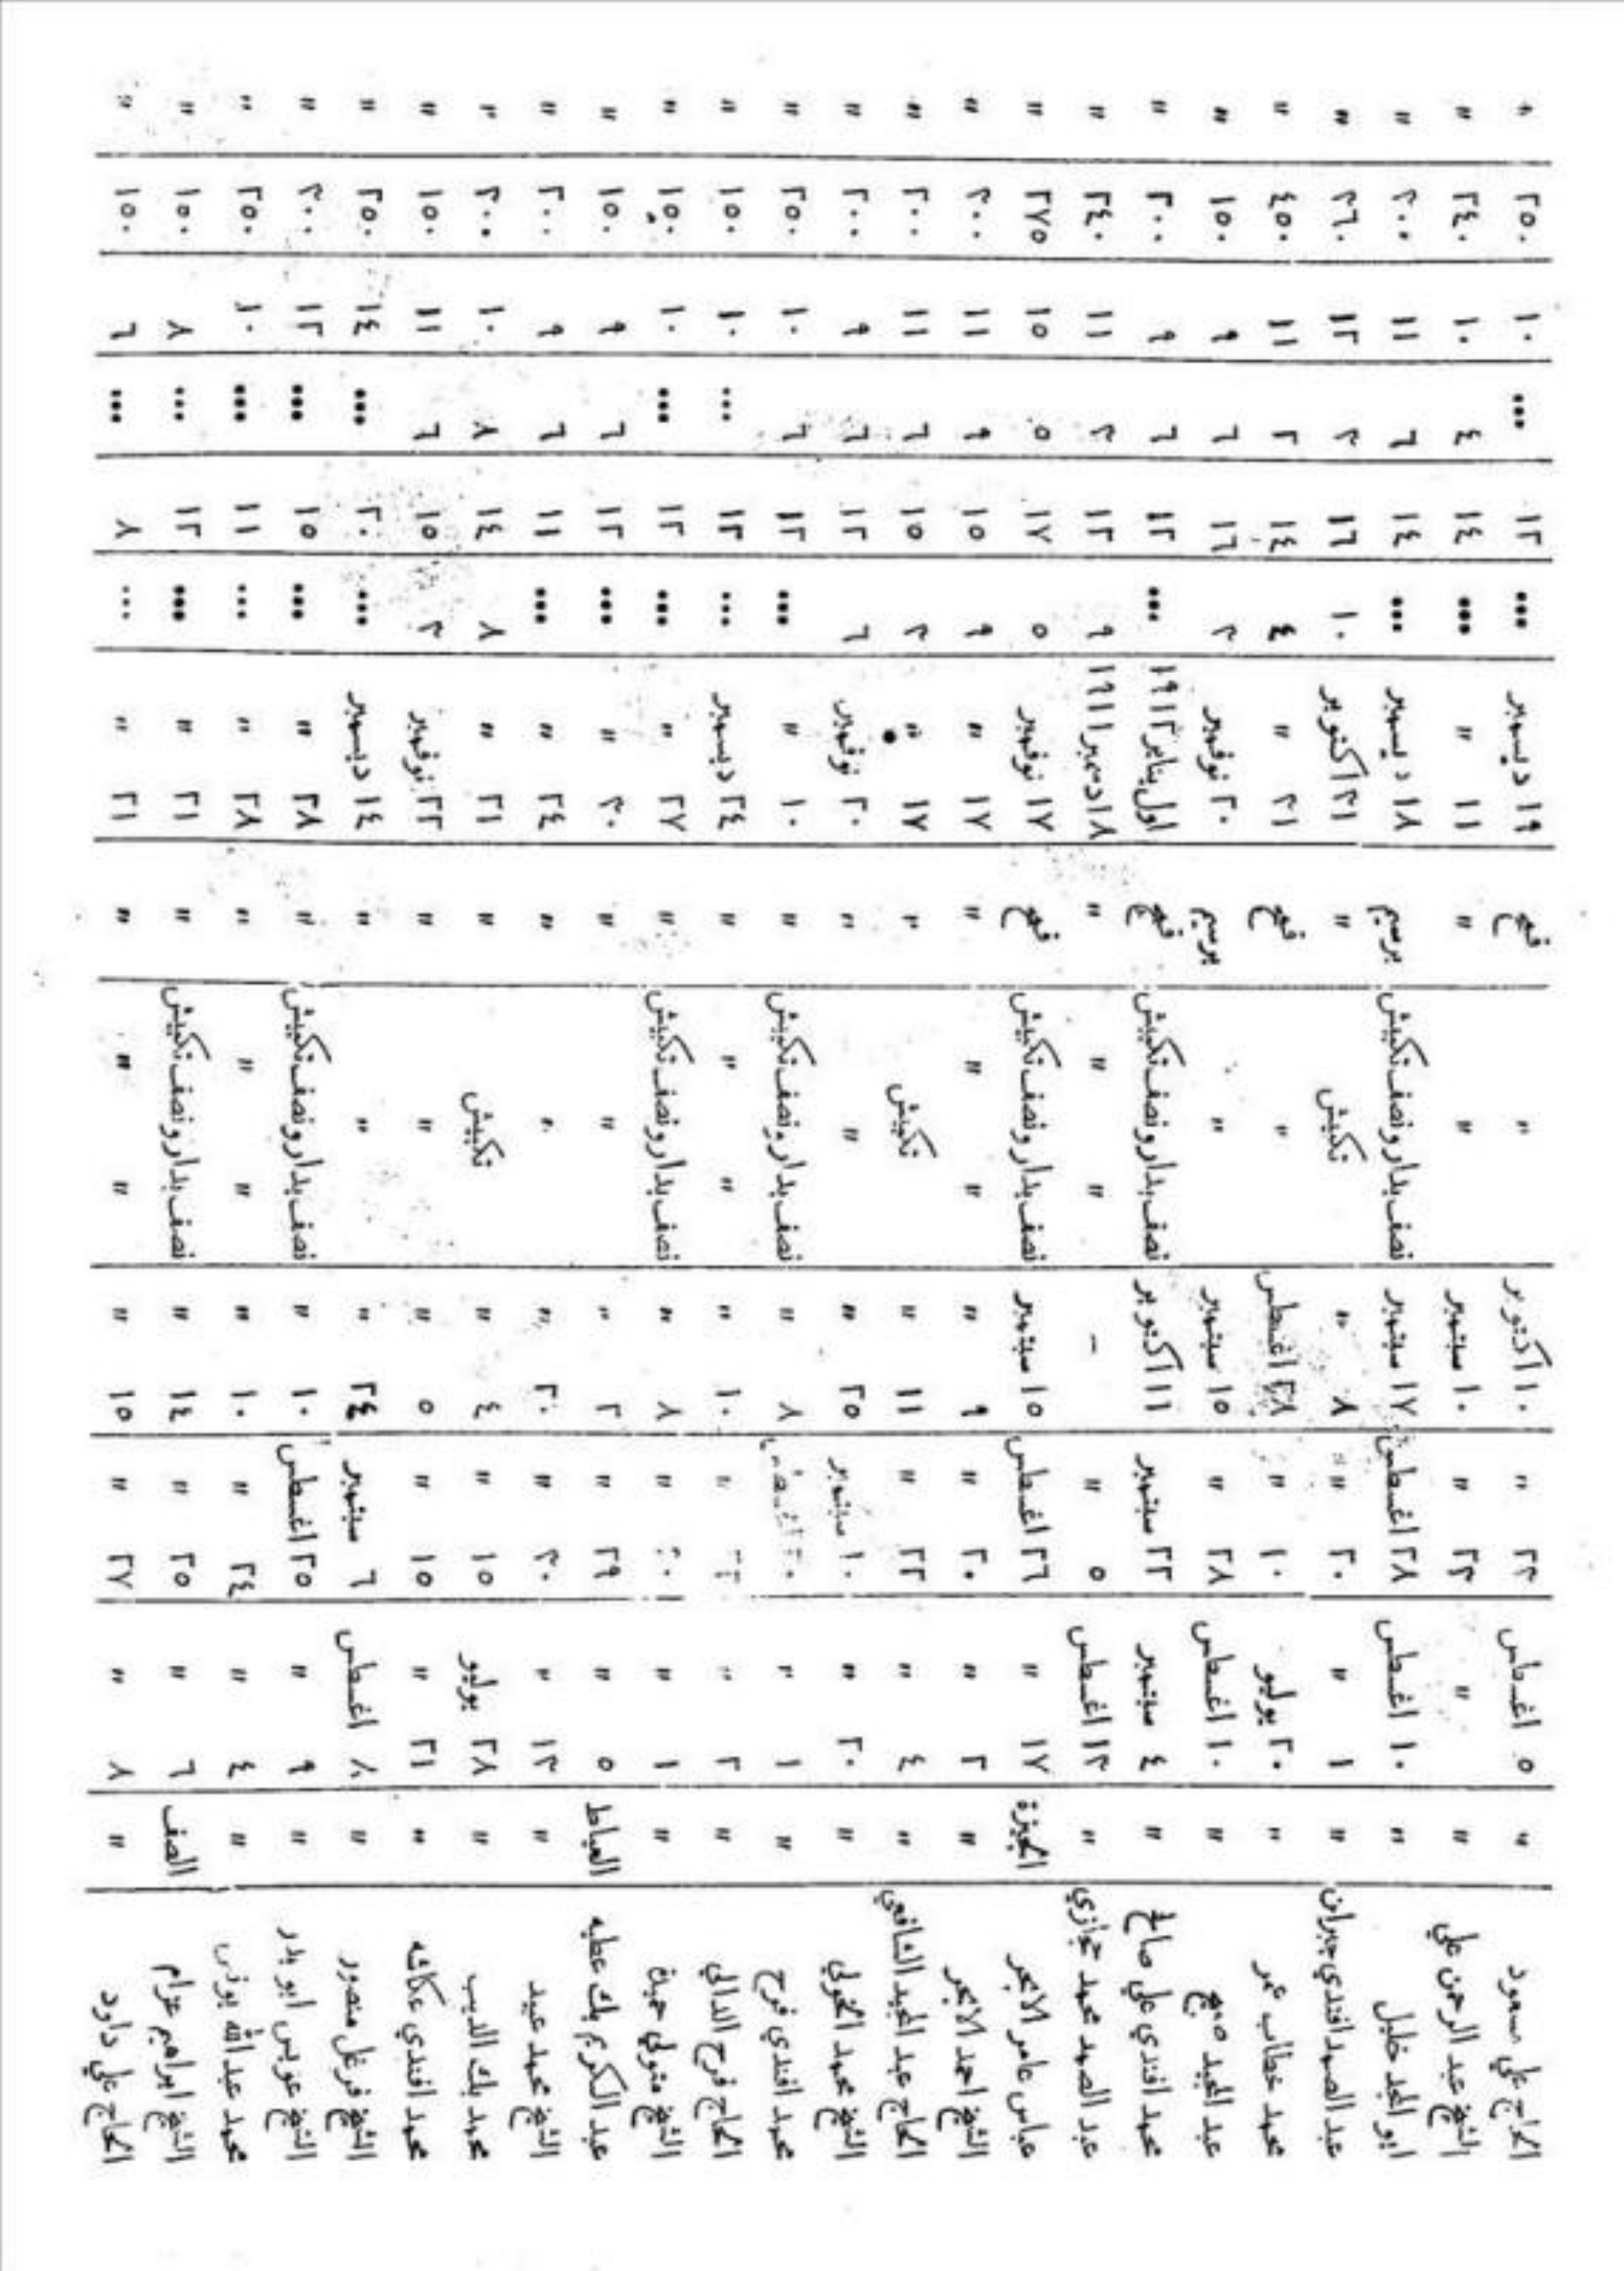 الحاج علي سعود " ٥ اغسطس ٢٣ " ١٠ اكتوبر " قمح ١٩ ديسمبر ... ١٢ ... ١٠ ٢٥٠ "
الشيخ عبد الرحمن علي " " ٢٣ " ١٠ سبتمبر " " ١١ " ... ١٤ ٤ ١٠ ٢٤٠ "
ابو المجد خليل " ١٠ اغسطس ٢٨ اغسطس ١٧ سبتمبر نصف بدار ونصف تكبيش برسيم ١٨ ديسمبر ... ١٤ ٦ ١١ ٣٠٠ "
عبد الصمد افندي جبران " ١ " ٢٠ " ٨ " تكبيش " ٣١ اكتوبر ١٠ ١٦ ٣ ١٢ ٣٦٠ "
محمد خطاب عمر " ٢٠ يوليو ١٠ " ٢٨ اغسطس " قمح ٣١ " ٤ ١٤ ٢ ١١ ٤٥٠ "
عبد المجيد " ١٠ اغسطس ٢٨ " ١٥ سبتمبر " " برسيم ٢٠ نوفمبر ٣ ١٦ ٦ ٩ ١٥٠ "
محمد افندي علي صالح " ٤ سبتمبر ٢٢ سبتمبر ١١ اكتوبر نصف بدار ونصف تكبيش قمح اول يناير ١٩١٢ ... ١٢ ٦ ٩ ٢٠٠ "
عبد الصمد محمد حجازي " ١٣ اغسطس ٥ " — " " " ١٨ دسمبر ١٩١١ ٩ ١٣ ٣ ١١ ٢٤٠ "
عباس عامر الابحر الجيزة ١٧ " ٢٦ اغسطس ١٥ سبتمبر نصف بدار ونصف تكبيش قمح ١٧ نوفمبر ٥ ١٧ ٥ ١٥ ٢٧٥ "
الشيخ احمد الابحر " ٢ " ٢٠ " ٩ " " " " ١٧ " ٩ ١٥ ٩ ١١ ٣٠٠ "
الحاج عبد المجيد الشافعي " ٤ " ٢٢ " ١١ " تكبيش " ١٧ " ٣ ١٥ ٦ ١١ ٢٠٠ "
الشيخ محمد الخولي " ٢٠ " ١٠ سبتمبر ٢٥ " " " ٢٠ نوفمبر ٦ ١٢ ٦ ٩ ٢٠٠ "
محمد افندي فرح " ١ " ٨ " نصف بدار ونصف تكبيش " ١٠ " ... ١٢ ٦ ١٠ ٢٥٠ "
الحاج فرح الدالي " ٢ " " ١٠ " " " " ٢٤ ديسمبر ... ١٢ ... ١٠ ١٥٠ "
الشيخ متولي حميدة " ١ " " ٨ " نصف بدار ونصف تكبيش " ٢٧ " ... ١٢ ... ١٠ ١٥٠ "
عبد الكريم بك عطيه العياط ٥ " ٢٩ " ٢ " " " ٣٠ " ... ١٢ ٦ ٩ ١٥٠ "
الشيخ محمد عيد " ١٣ " ٣٠ " ٢٠ " " " ٢٤ " ... ١١ ٦ ٩ ٢٠٠ "
محمد بك الديب " ٢٨ يوليو ١٥ " ٤ " تكبيش " ٢١ " ٨ ١٤ ٨ ١٠ ٣٠٠ "
محمد افندي عكاشه " ٢١ " ١٥ " ٥ " " " ٢٢ نوفمبر ٣ ١٥ ٦ ١١ ١٥٠ "
الشيخ فرغل منصور " ٨ اغسطس ٦ سبتمبر ٢٤ " " " ١٤ ديسمبر ... ٢٠ ... ١٤ ٢٥٠ "
الشيخ عويس ابو بدر " ٩ " ٢٥ اغسطس ١٠ " نصف بدار ونصف تكبيش " ٢٨ " ... ١٥ ... ١٢ ٣٠٠ "
محمد عبد الله يونس " ٤ " ٢٤ " ١٠ " " " " ٢٨ " ... ١١ ... ١٠ ٢٥٠ "
الشيخ ابراهيم عزام الصف ٦ " ٢٥ " ١٤ " نصف بدار ونصف تكبيش " ٢١ " ... ١٢ ... ٨ ١٥٠ "
الحاج علي داود " ٨ " ٢٧ " ١٥ " " " " ٢١ " ... ٨ ... ٦ ١٥٠ "